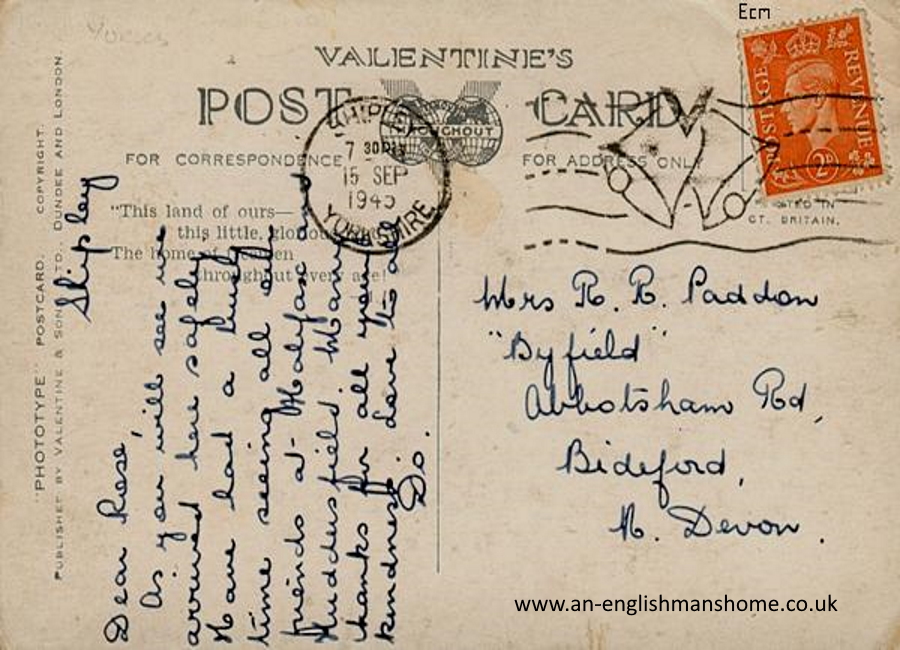 Ecm
VALENTINE'S
POST CARD
THROUGHOUT
FOR CORRESPONDENCE
FOR ADDRESS ONLY
"This land of ours—
this little, glorious
The home of
throughout every age!
SHIPLEY
7 30 PM
15 SEP
1945
YORKSHIRE
POSTAGE
REVENUE
2D
PRINTED IN
GT. BRITAIN.
"PHOTOTYPE" POSTCARD. COPYRIGHT.
PUBLISHED BY VALENTINE & SONS LTD. DUNDEE AND LONDON.
Shipley
Dear Rose,
As you will see we
arrived here safely.
Have had a lovely
time seeing all our
friends at Halyfax and
Huddersfield. Many
thanks for all your
kindness. Love to all
Do.
Mrs R. R. Paddon
"Byfield"
Abbotsham Rd,
Bideford,
N. Devon.
www.an-englishmanshome.co.uk